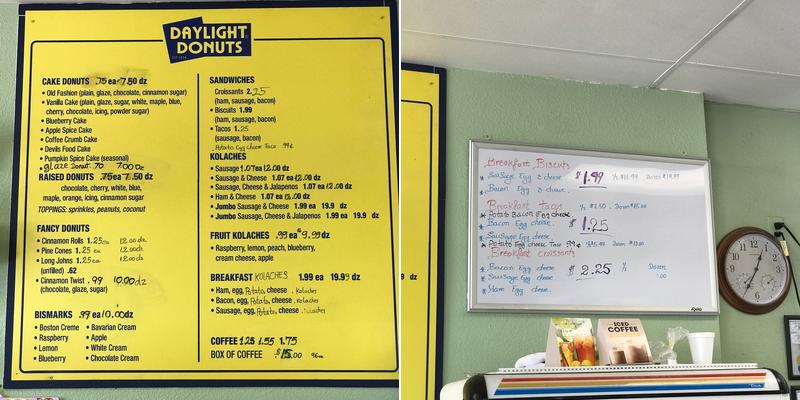 DAYLIGHT
DONUTS
CAKE DONUTS .75 ea 7.50 dz
• Old Fashion (plain, glaze, chocolate, cinnamon sugar)
• Vanilla Cake (plain, glaze, sugar, white, maple, blue,
cherry, chocolate, icing, powder sugar)
• Blueberry Cake
• Apple Spice Cake
• Coffee Crumb Cake
• Devils Food Cake
• Pumpkin Spice Cake (seasonal)
• glaze Donut .70 7.00 Dz
RAISED DONUTS .75ea 7.50 dz
chocolate, cherry, white, blue,
maple, orange, icing, cinnamon sugar
TOPPINGS: sprinkles, peanuts, coconut
FANCY DONUTS
• Cinnamon Rolls 1.25ea 12.00 dz
• Pine Cones 1.25ea 12.00dz
• Long Johns 1.25ea 12.00dz
(unfilled) .62
• Cinnamon Twist .99 10.00 dz
(chocolate, glaze, sugar)
BISMARKS .99 ea 10.00dz
• Boston Creme • Bavarian Cream
• Raspberry • Apple
• Lemon • White Cream
• Blueberry • Chocolate Cream
SANDWICHES
Croissants 2.25
(ham, sausage, bacon)
• Biscuits 1.99
(ham, sausage, bacon)
• Tacos 1.25
(sausage, bacon)
. Potato Egg cheese Taco 99¢
KOLACHES
• Sausage 1.07ea 12.00 dz
• Sausage & Cheese 1.07 ea 12.00 dz
• Sausage, Cheese & Jalapenos 1.07 ea 12.00 dz
• Ham & Cheese 1.07 ea 12.00 dz
• Jumbo Sausage & Cheese 1.99 ea 19.9 dz
• Jumbo Sausage, Cheese & Jalapenos 1.99 ea 19.9 dz
FRUIT KOLACHES .99 ea 9.99 dz
• Raspberry, lemon, peach, blueberry,
cream cheese, apple
BREAKFAST KOLACHES 1.99 ea 19.99 dz
• Ham, egg, Potato, cheese . Kolaches
• Bacon, egg, Potato, cheese . Kolaches
• Sausage, egg, Potato, cheese . Kolaches
COFFEE 1.25 1.55 1.75
BOX OF COFFEE $15.00 96oz
dz
Breakfast Biscuits
* Sausage Egg & cheese $1.99 ½ $11.94 Dozen $19.99
* Bacon Egg & cheese
Breakfast tacos ½ $7.50 . Dozen $15.00
* Potato Bacon Egg cheese
* Bacon Egg cheese $1.25
* Sausage Egg cheese
* Potato Egg cheese Taco 99¢ Dozen
Breakfast croissants
* Bacon Egg cheese $2.25 ½ Dozen
* Sausage Egg cheese
* Ham Egg cheese
expo
ICED
COFFEE